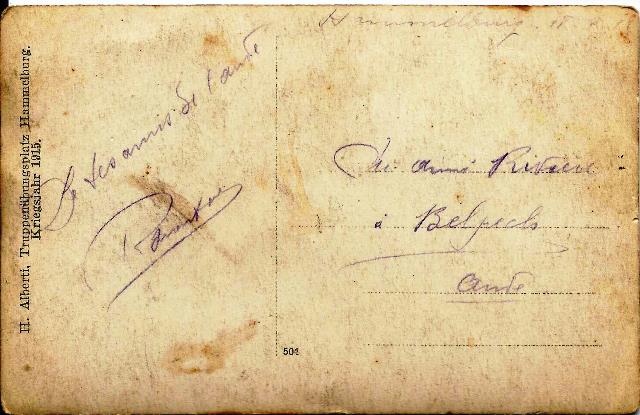 H. Alberti, Truppenübungsplatz Hammelburg.
Kriegsjahr 1915.
De tes amis de l'aude
Hammelburg
ami Rivière
à Belpech
Aude
504